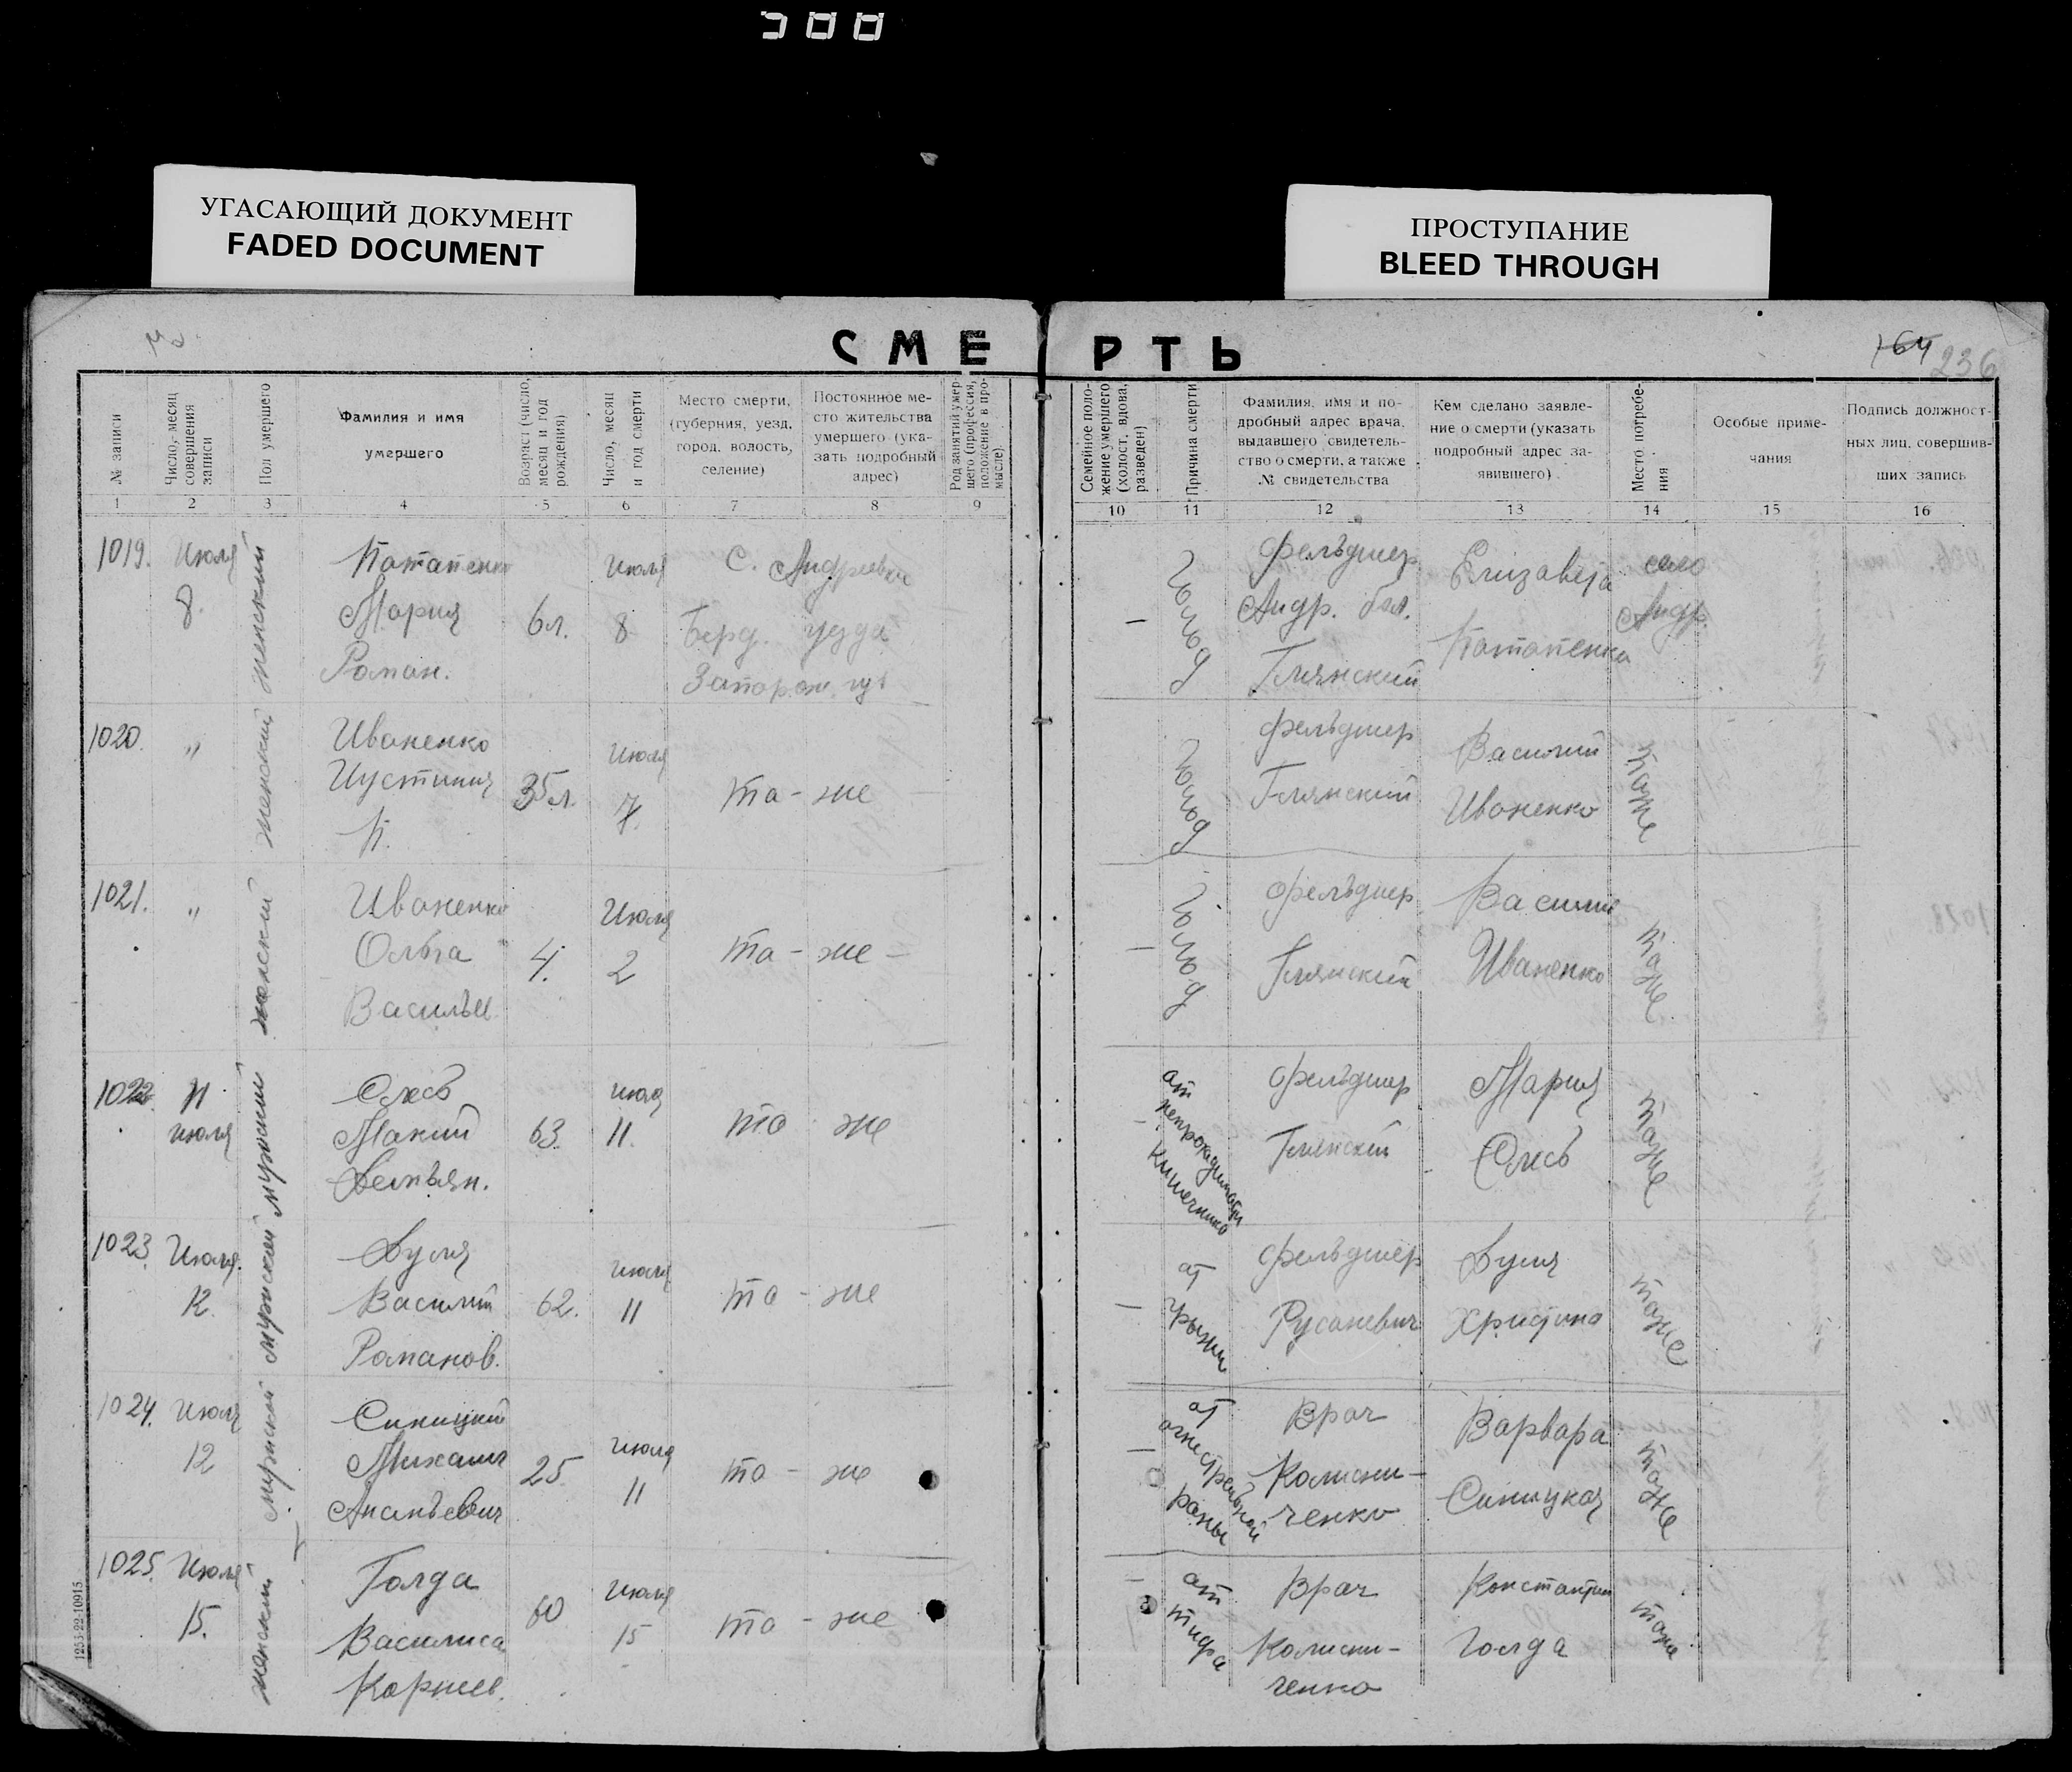 УГАСАЮЩИЙ ДОКУМЕНТ
FADED DOCUMENT
ПРОСТУПАНИЕ
BLEED THROUGH
СМЕРТЬ
164 236
№ записи
Число, месяц совершения записи
Пол умершего
Фамилия и имя
умершего
Возраст (число, месяц и год рождения)
Число, месяц и год смерти
Место смерти,
(губерния, уезд,
город, волость,
селение)
Постоянное ме-
сто жительства
умершего (ука-
зать подробный
адрес)
Род занятий умер-
шего (профессия,
положение в про-
мысле).
Семейное поло-
жение умершего
(холост, вдова,
разведен)
Причина смерти
Фамилия, имя и по-
дробный адрес врача,
выдавшего свидетель-
ство о смерти, а также
№ свидетельства
Кем сделано заявле-
ние о смерти (указать
подробный адрес за-
явившего)
Место погребе-
ния
Особые приме-
чания
Подпись должност-
ных лиц, совершив-
ших запись
1 2 3 4 5 6 7 8 9 10 11 12 13 14 15 16
1019. Июля женский Потапенко июля с. Андреевки голод фельдшер Елизавета село
8. Мария 6л. 8 Берд. уезда – Андр. бол. Потапенко Андр.
Роман. Запорож. губ Глянский
1020. " женский Иваненко июля голод фельдшер Василий тоже
Иустиния 35л. 7. та - же Глянский Иваненко
П.
1021. " женский Иваненко Июля голод фельдшер Василий тоже
Ольга 4. 2 та - же - – Глянский Иваненко
Васильев.
1022. 11 мужский июля от непроходимости кишечника фельдшер Мария тоже
июля 63. 11. та же – Глянский
Демьян.
1023. Июля. мужской Дуля июля от грыжи фельдшер Дуля тоже
12. Василий 62. 11 та - же – Русаневич Христина
Романов.
1024. Июля мужской Синицкий июля от огнестрельной раны Врач Варвара тоже
12 Михаил 25. 11 та - же – Колисни- Синицкая
Ананьевич ченко
1025. Июля женский Голда Июля – от тифа Врач Константин тоже
15. Василиса 60 15 та - же Колисни- Голда
Корнеев. ченко
1253-22-10915